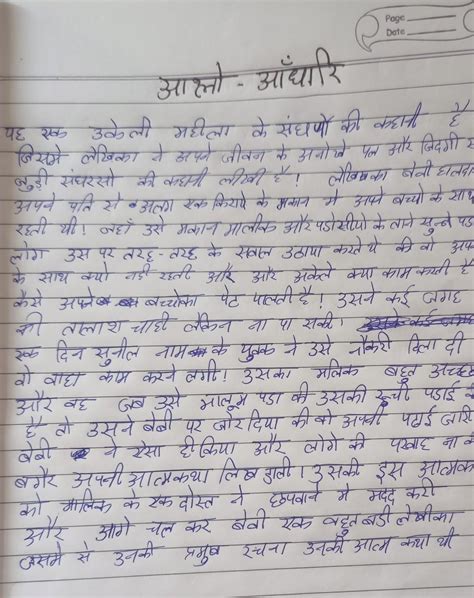 Page
Date
आलो - आँधारि
यह एक उकेली महीला के संघर्षो की कहानी है
जिसमे लेखिका ने अपने जीवन के अनोखे पल और जिंदगी स
जुड़ी संघरसो की कहानी लीखी है! लेखिका बेबी हालदा
अपने पति से अलग एक किराये के मकान मे अपने बच्चो के साथ
रहती थी! जहाँ उसे मकान मालीक और पडोसीयो के ताने सुन्ने पड
लोग उस पर तरह-तरह के सवाल उठाया करते थे की वो अप
के साथ क्यो नही रहती और और अकेले क्या काम करती है
कैसे अपने बच्चोका पेट पालती है! उसने कई जगह
की तलाश चाही लेकिन ना पा सकी!
एक दिन सुनील नाम के युवक ने उसे नौकरी दिला दी
वो वाहा काम करने लगी! उसका मलिक बहुत अच्छा
और वह जब उसे मालूम पडा की उसकी रूची पढाई
है तो उसने बेबी पर जोर दिया की वो अपनी पढाई जारी
बेबी ने ऐसा ही किया और लोगे की परवाह ना क
बगैर अपनी आत्मकथा लिख डाली! उसकी इस आत्मक
को मालिक के एक दोस्त ने छपवाने मे मदद करी
और आगे चल कर बेबी एक बहुत बडी लेखीका
उसमे से उनकी प्रमुख रचना उनकी आत्म कथा थी